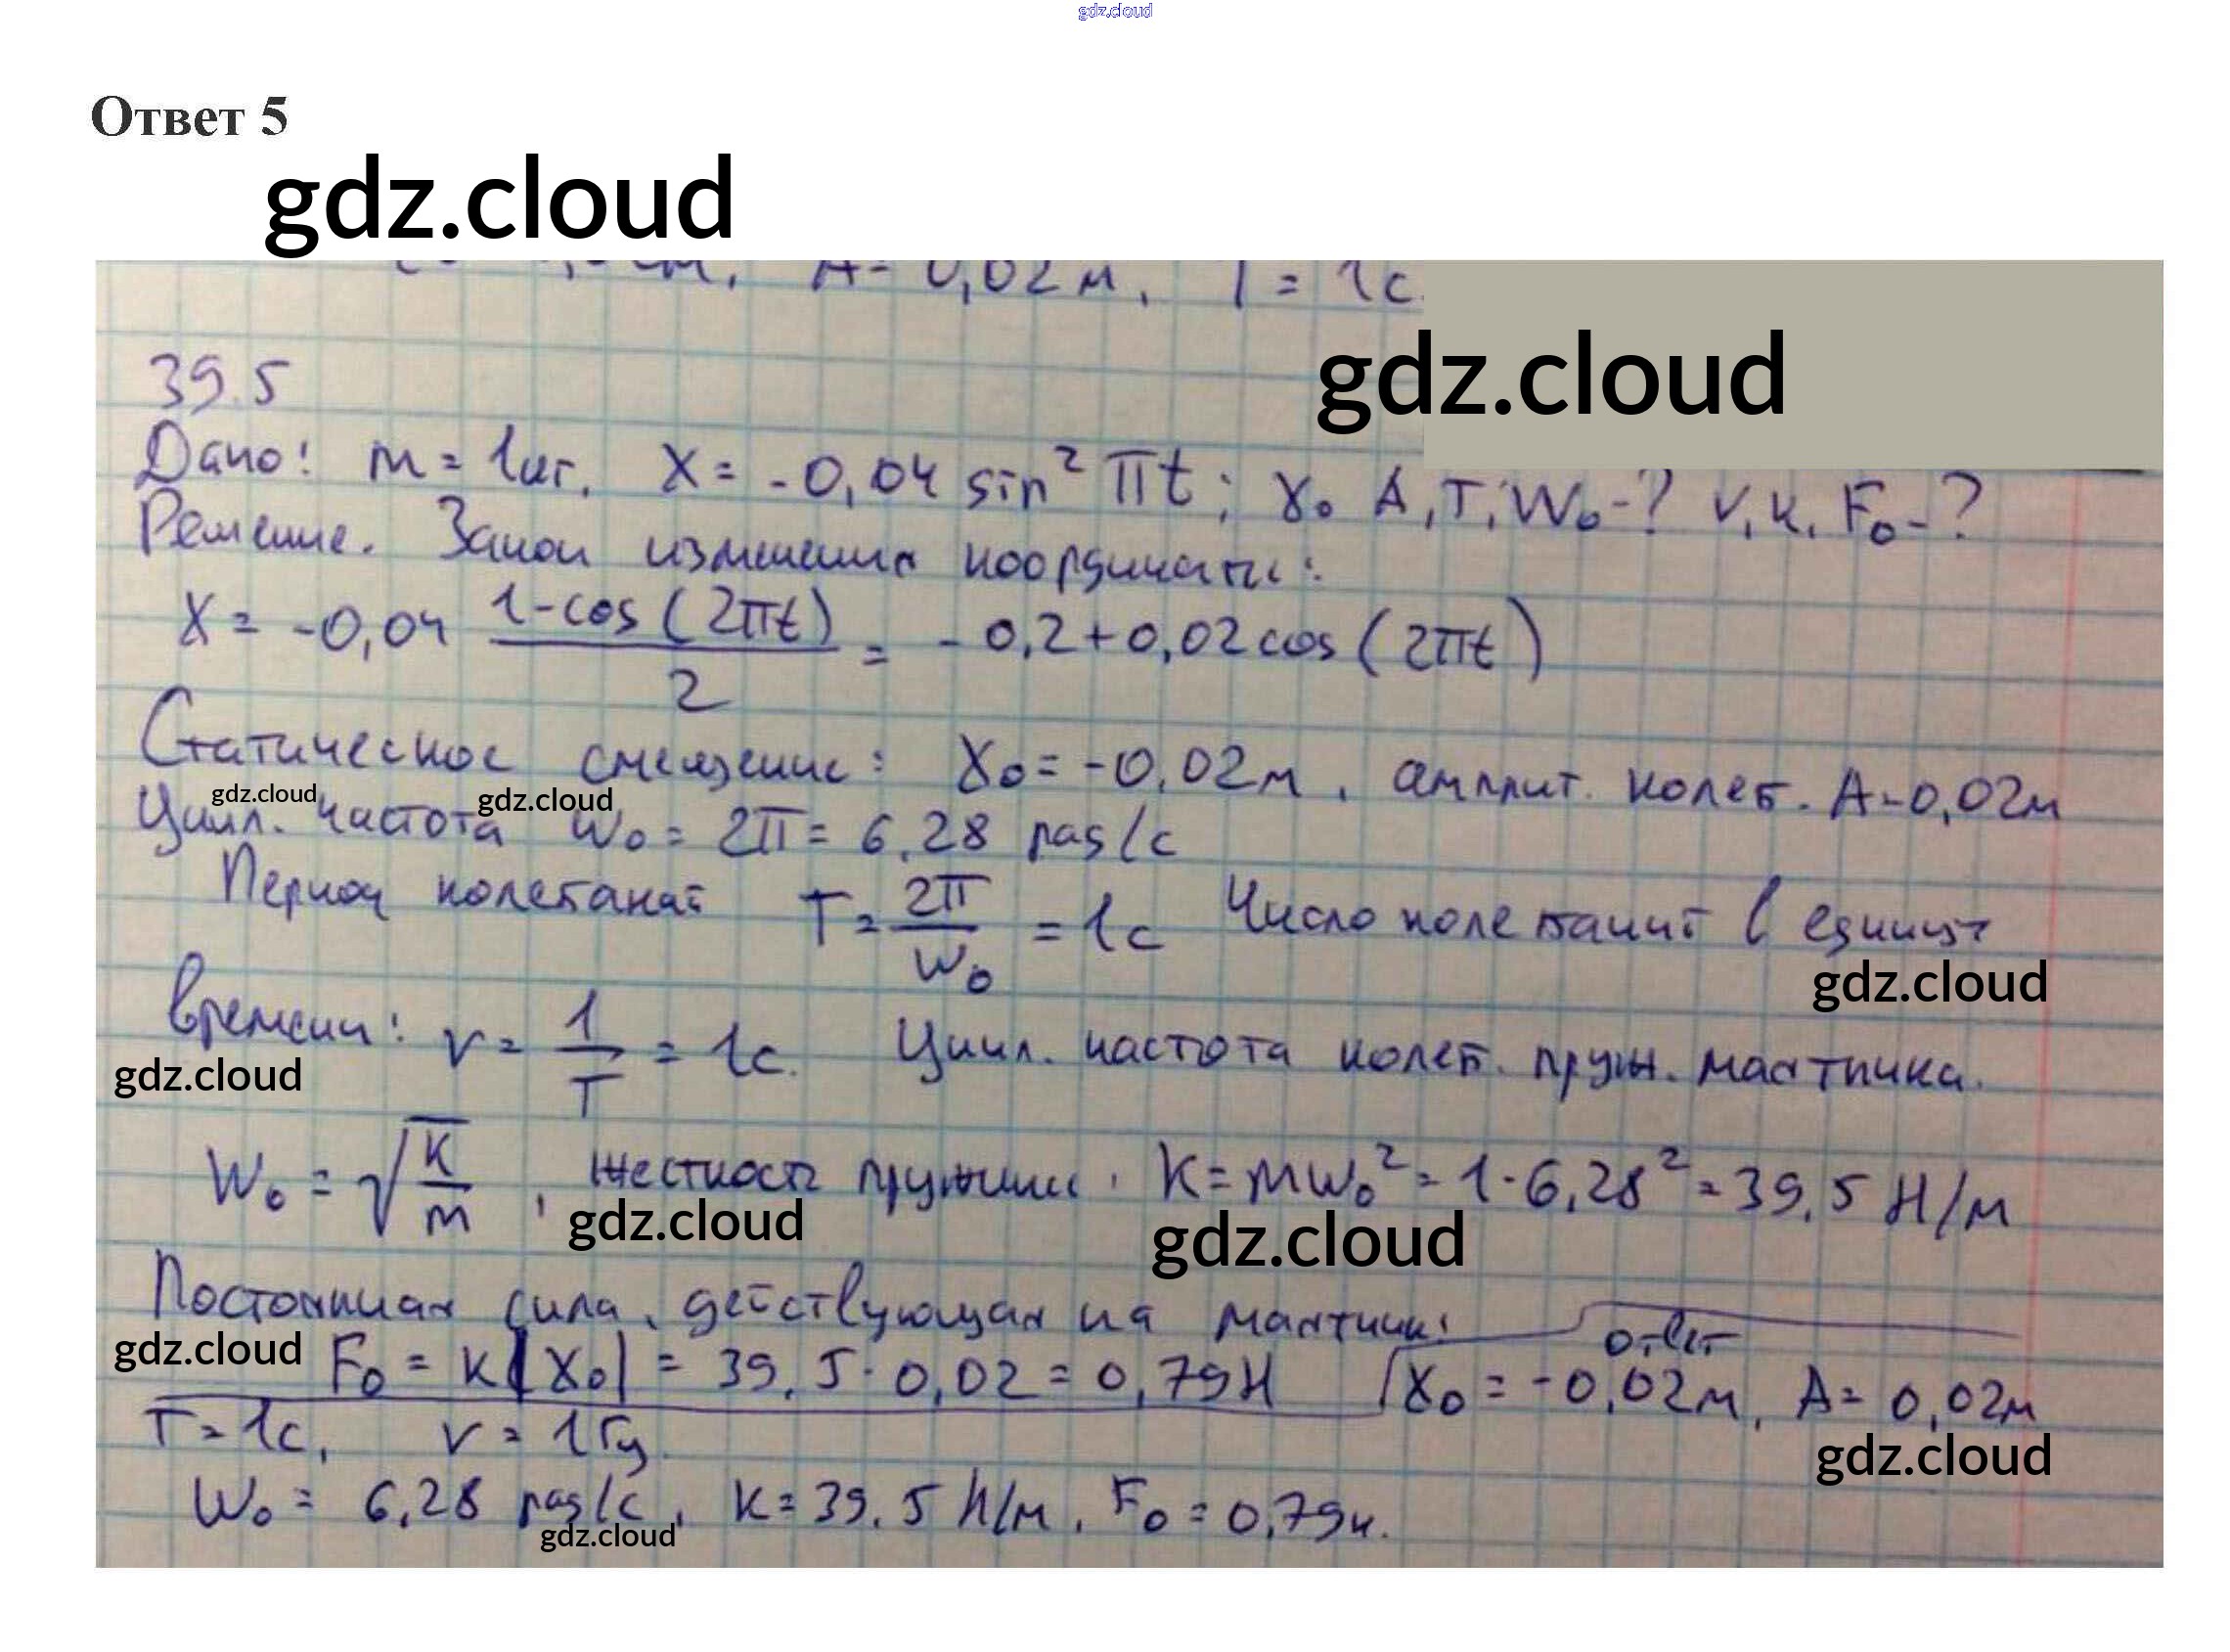 gdz.cloud
Ответ 5
gdz.cloud
А= 0,02м, T = 1с.
gdz.cloud
39.5
Дано: m = 1кг. X = -0,04 sin² πt; X₀ A, T, W₀-? ν, к, F₀-?
Решение. Закон изменения координаты:
X = -0,04 (1-cos(2πt))/2 = -0,2+0,02cos(2πt)
Статическое смещение: X₀ = -0,02м, амплит. колеб. A=0,02м
gdz.cloud gdz.cloud
Цикл. частота W₀ = 2π = 6,28 рад/с
Период колебаний T = 2π/W₀ = 1с Число колебаний в единицу
gdz.cloud
времени: ν = 1/T = 1с. Цикл. частота колеб. пруж. маятника.
gdz.cloud
W₀ = √(к/m), жесткость пружины, K = mW₀² = 1·6,28² = 39,5 Н/м
gdz.cloud gdz.cloud
Постоянная сила, действующая на маятник:
gdz.cloud
F₀ = к|X₀| = 39,5·0,02 = 0,79Н
ответ
X₀ = -0,02м, A = 0,02м
T = 1с, ν = 1Гц
gdz.cloud
W₀ = 6,28 рад/с, к = 39,5 Н/м, F₀ = 0,79н.
gdz.cloud